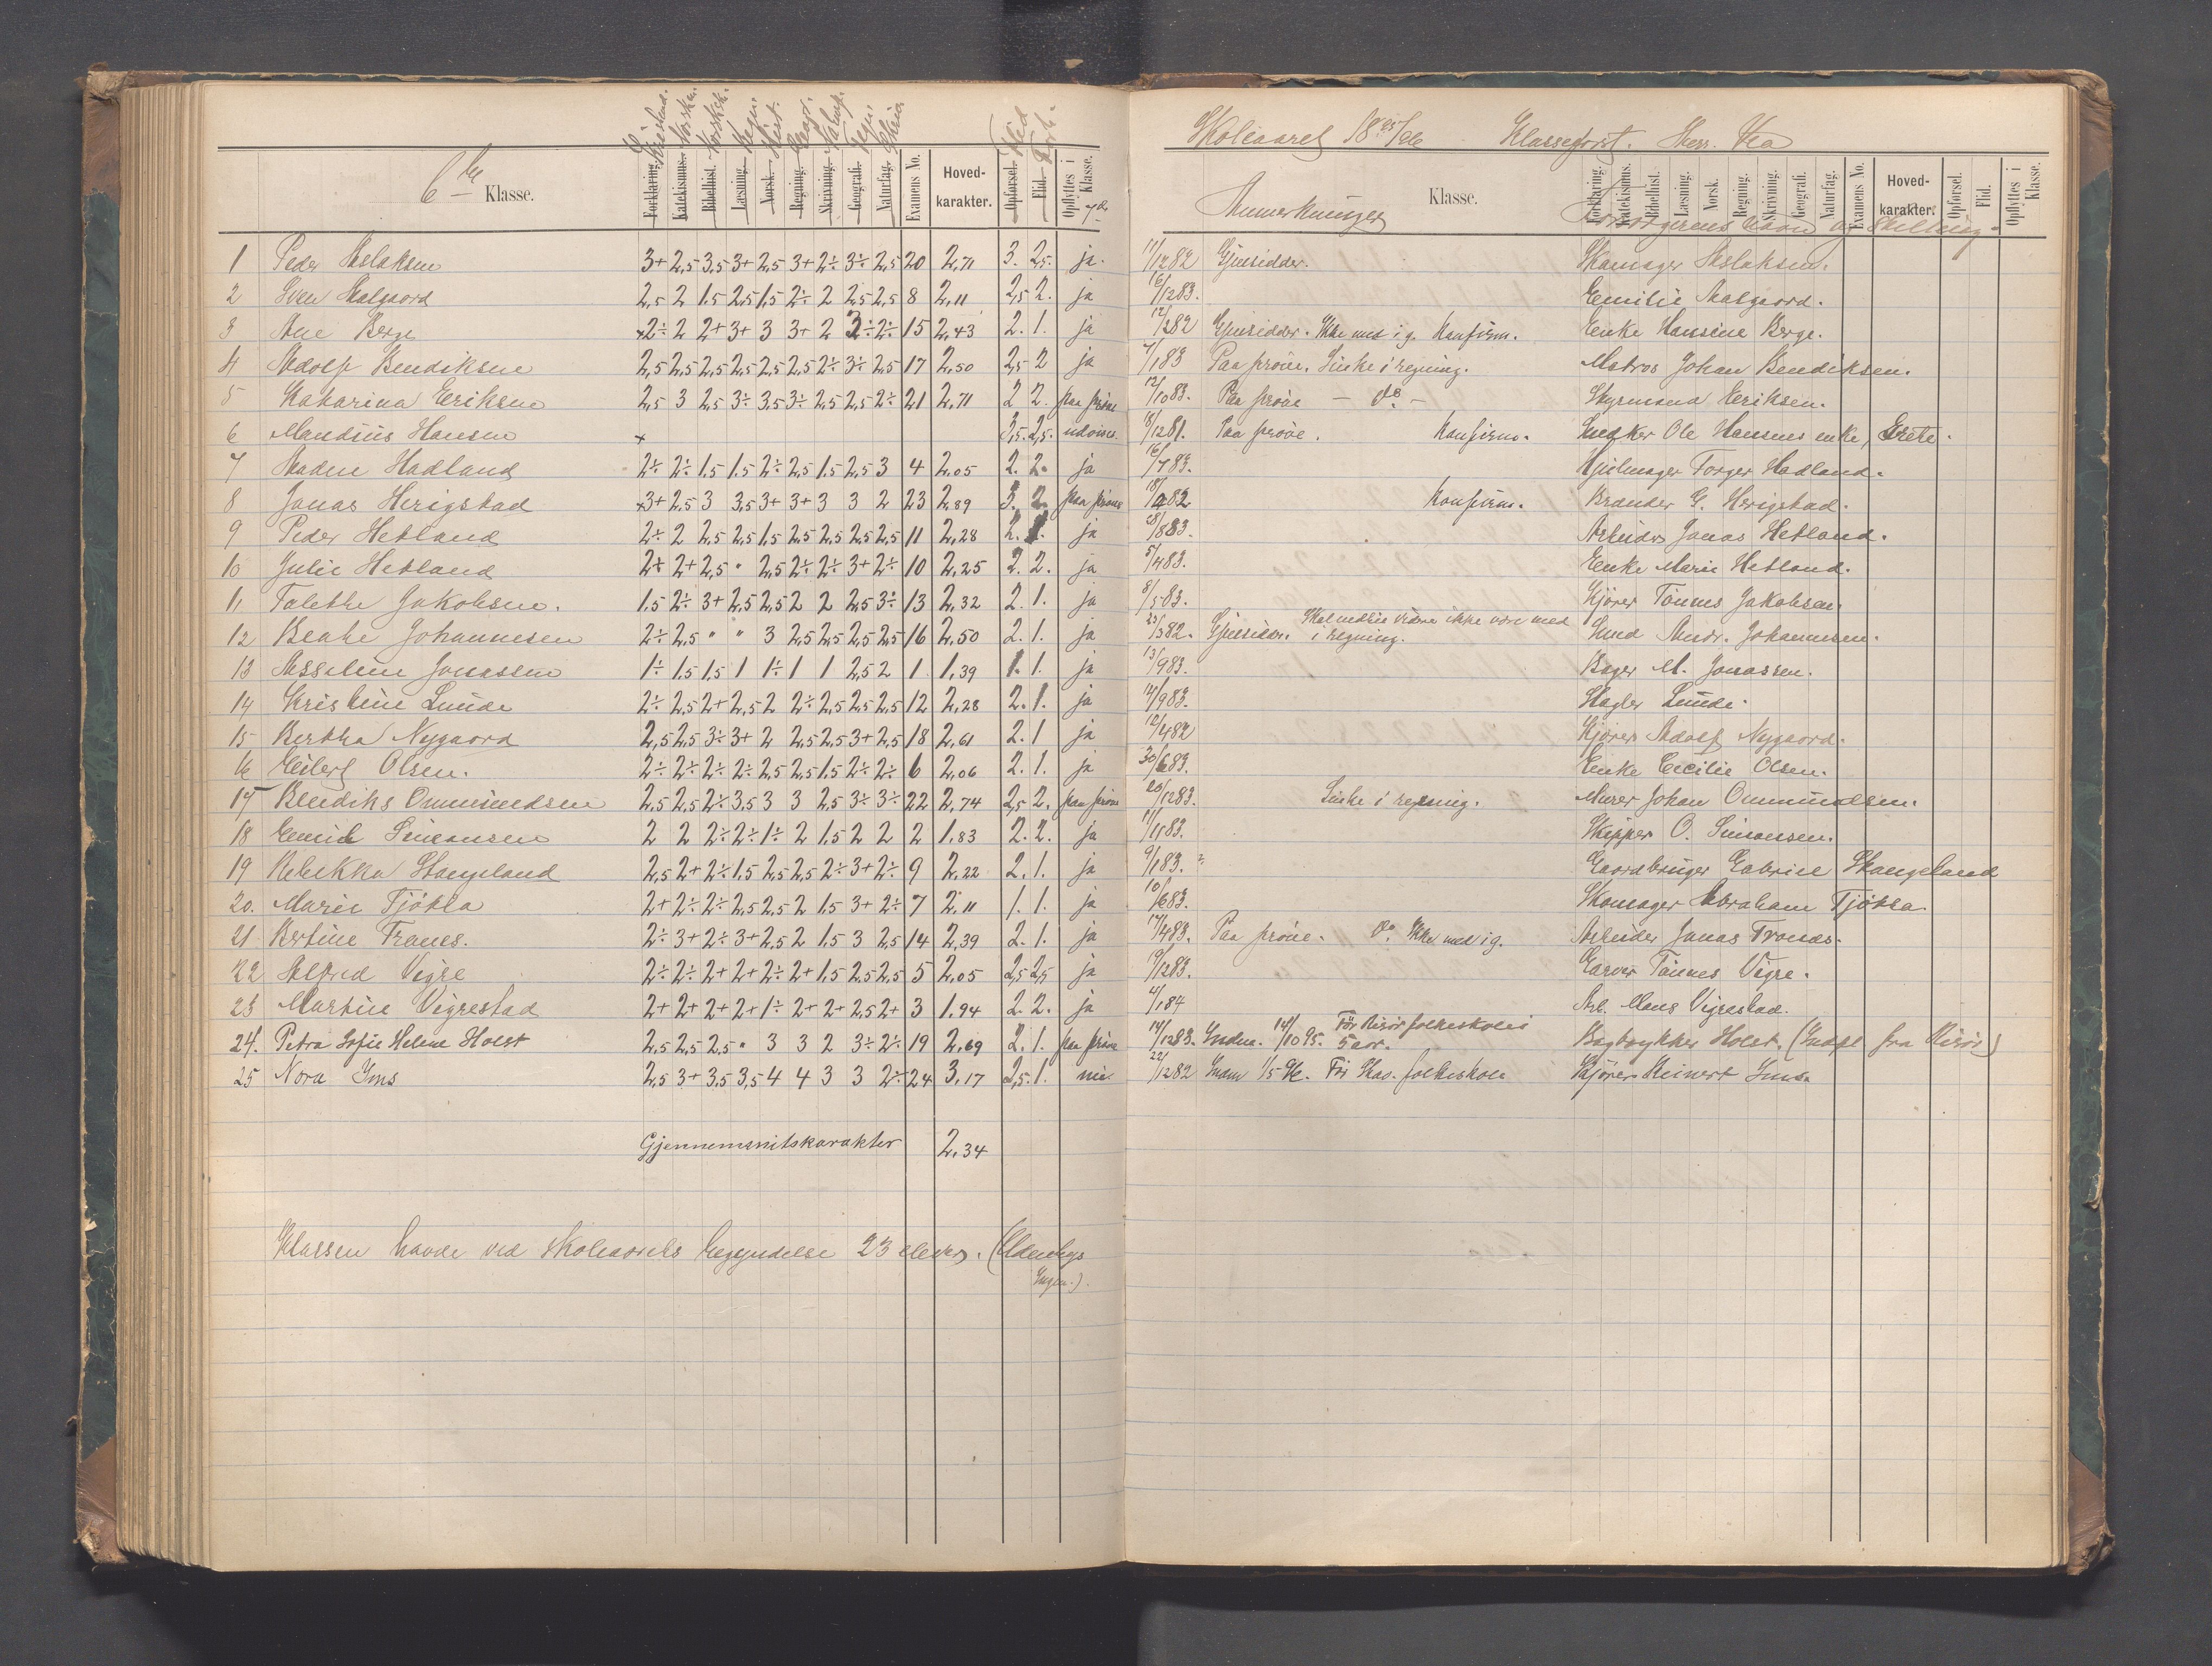 6te Klasse.
Forklaring. Katekismus. Bibelhist. Læsning. Norsk. Regning. Skrivning. Geografi. Naturfag. Examens No. Hoved-karakter. Opførsel. Flid. Opflyttes i 7de Klasse.
1 Peder Aslaksen 3+ 2,5 3,5 3+ 2,5 3+ 2÷ 3÷ 2,5 20 2,71 3. 2,5. ja.
2 Sven Aalgaard 2,5 2 1,5 2,5 1,5 2÷ 2 2,5 2,5 8 2,11 2,5 2. ja
3 Ane Berge 2÷ 2 2+ 3+ 3 3+ 2 3÷ 2÷ 15 2,43 2. 1. ja
4 Adolf Bendiksen 2,5 2,5 2,5 2,5 2,5 2,5 2÷ 3÷ 2,5 17 2,50 2,5 2 ja
5 Katarina Eriksen 2,5 3 2,5 3÷ 3,5 3÷ 2,5 2,5 2÷ 21 2,71 2 2. paa prøve
6 Mandius Hansen + 3,5. 2,5. udvist.
7 Madne Hadland 2÷ 2÷ 1,5 1,5 2÷ 2,5 1,5 2,5 3 4 2,05 2. 2. ja
8 Jonas Herigstad 3+ 2,5 3 3,5 3+ 3+ 3 3 2 23 2,89 3. 2. paa prøve
9 Peder Hetland 2÷ 2 2,5 2,5 1,5 2,5 2,5 2,5 2,5 11 2,28 2. 1. ja
10 Julie Hetland 2+ 2+ 2,5 " 2,5 2÷ 2÷ 3+ 2÷ 10 2,25 2. 2. ja
11 Talette Jakobsen. 1,5 2÷ 3+ 2,5 2,5 2 2 2,5 3÷ 13 2,32 2. 1. ja
12 Beate Johannesen 2÷ 2,5 " " 3 2,5 2,5 2,5 2,5 16 2,50 2. 1. ja
13 Asseline Jonassen 1÷ 1,5 1,5 1 1÷ 1 1 2,5 2 1 1,39 1. 1. ja
14 Kristine Lunde 2÷ 2,5 2+ 2,5 2 2÷ 2,5 2,5 2,5 12 2,28 2. 1. ja
15 Bertha Nygaard 2,5 2,5 3÷ 3+ 2 2,5 2,5 3+ 2,5 18 2,61 2. 1 ja
16 Eilert Olsen. 2÷ 2÷ 2÷ 2÷ 2,5 2,5 1,5 2÷ 2÷ 6 2,06 2. 1. ja
17 Bendiks Ommundsen 2,5 2,5 2÷ 3,5 3 3 2,5 3÷ 3÷ 22 2,74 2,5 2. paa prøve
18 Emil Simonsen 2 2 2÷ 2÷ 1÷ 2 1,5 2 2 2 1,83 2. 2. ja
19 Rebekka Stangeland 2,5 2+ 2÷ 1,5 2,5 2,5 2÷ 3+ 2÷ 9 2,22 2. 1. ja
20. Marie Tjötta 2+ 2÷ 2÷ 2,5 2,5 2 1,5 3+ 2÷ 7 2,11 1. 1. ja
21 Bertine Tranes. 2÷ 3+ 2÷ 3+ 2,5 2 1,5 3 2,5 14 2,39 2. 1. ja
22 Alfred Vigre 2÷ 2÷ 2+ 2+ 2÷ 2+ 1,5 2,5 2,5 5 2,05 2,5 2,5 ja
23 Martin Vigrestad 2+ 2+ 2+ 2+ 1÷ 2+ 2+ 2,5 2+ 3 1,94 2. 2. ja
24. Petra Sofie Helene Holst 2,5 2,5 2,5 " 3 3 2 3÷ 2÷ 19 2,69 2. 1. paa prøve
25 Nora Ims 2,5 3+ 3,5 3,5 4 4 3 3 2÷ 24 3,17 2,5. 1. nei.
Gjennemsnitskarakter 2,34
Klassen havde ved skoleaarets begyndelse 23 elever. (Udenbys
Ingen.).
Skoleaaret 1895/96 Klasseforst. Herr. Kra
Anmerkninger Klasse. Forsørgerens navn og stilling.
Forklaring. Katekismus. Bibelhist. Læsning. Norsk. Regning. Skrivning. Geografi. Naturfag. Examens No. Hoved-karakter. Opførsel. Flid. Opflyttes i Klasse.
11/12 82 Gjensidder. Skomager Aslaksen.
16/12 83. Emilie Aalgaard.
12/2 82 Gjensidder. Ikke med i g. Konfirm. Enke Hansine Berge.
7/1 83 Paa prøve. Sinke i regning. Matros Johan Bendiksen.
12/10 83. Paa prøve – do – Styrmand Eriksen.
8/12 81. Paa prøve. Konfirm. Snedker Ole Hansens enke, Grete.
16/7 83. Hjulmager Torger Hadland.
18/9 82 Konfirm. Brænder G. Herigstad.
28/8 83 Arbeider Jonas Hetland.
5/4 83. Enke Marie Hetland.
8/5 83. Kjører Tönnes Jakobsen.
23/3 82. Gjensidder. Skal nedlie videre ikke være med
i regning. Smed Andr. Johannesen.
13/9 83. Bager M. Jonassen.
14/9 83. Hagler Lunde.
12/4 82 Kjører Adolf Nygaard.
30/6 83. Enke Cecilie Olsen.
20/12 83. Sinke i regning. Murer Johan Ommundsen.
11/11 83. Skipper O. Simonsen.
9/1 83. Gaardbruger Gabriel Stangeland
10/6 83. Skomager Abraham Tjötta.
17/4 83. Paa prøve. do. Ikke med i g. Arbeider Jonas Tranes.
19/12 83. Garver Tönnes Vigre.
4/1 84 Arb. Mons Vigrestad.
14/12 83. Indm. 14/10 95. Før Risör folkeskole
5 aar. Bogtrykker Holst. (Indfl. fra Risör)
22/12 82 Indm 1/5 96. Før Hav. folkeskole Kjører Reinert Ims.